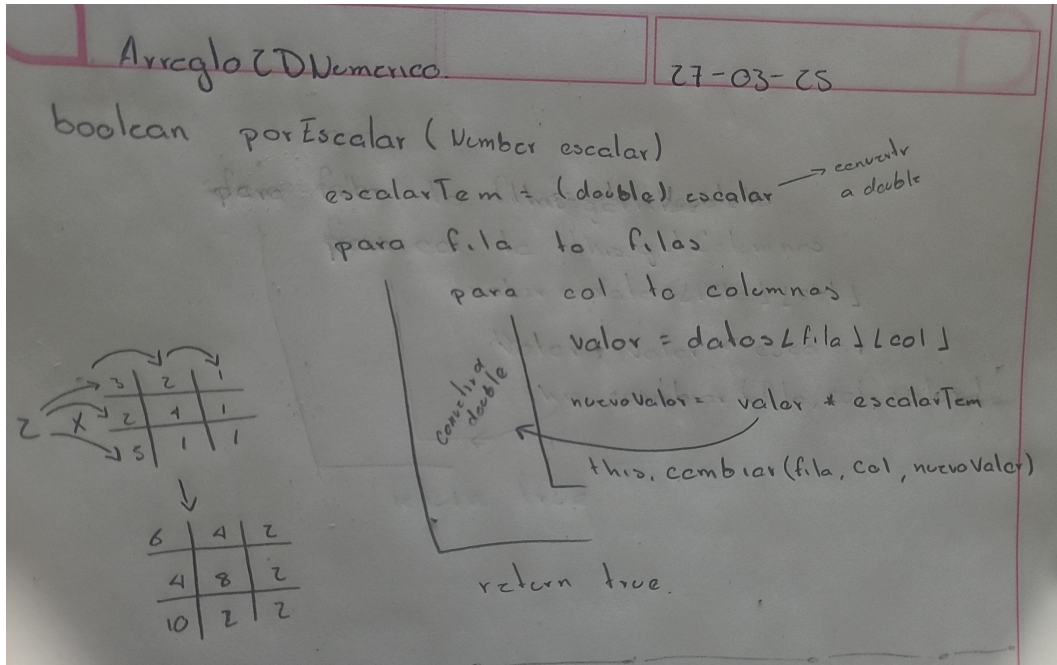 Arreglo2DNumerico.
27-03-25
boolean porEscalar (Number escalar)
escalarTem = (double) escalar → convertir a double
para fila to filas
para col to columnas
valor = datos[fila][col]
nuevoValor = valor * escalarTem
convertir a double
this.cambiar(fila, col, nuevoValor)
return true.
3 2 1
2 x 2 4 1
5 1 1
6 4 2
4 8 2
10 2 2